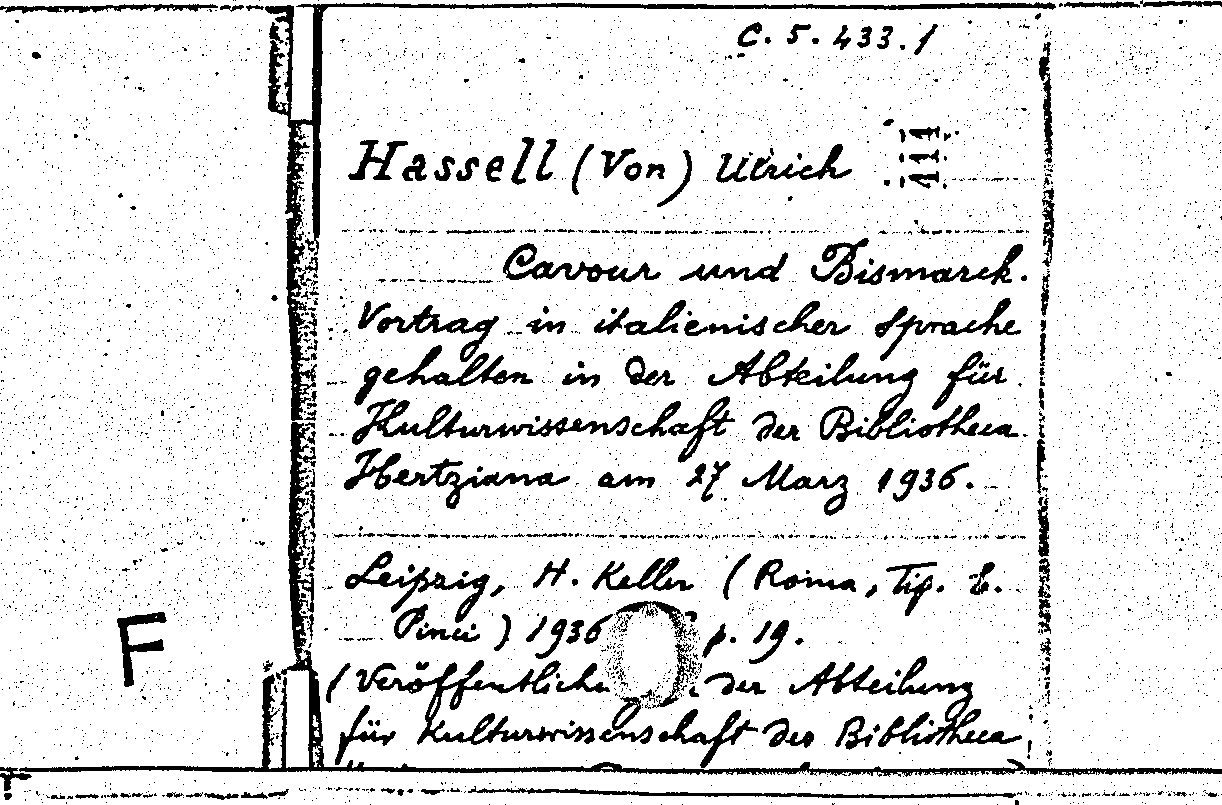 C. 5. 433. 1
Hassell (Von) Ulrich
Cavour und Bismarck.
Vortrag in italienischer Sprache
gehalten in der Abteilung für
Kulturwissenschaft der Bibliotheca
Hertziana am 27 Marz 1936.
Leipzig, H. Keller (Roma, Tip. E.
Pinci) 1936 p. 19.
(Veröffentliche der Abteilung
für Kulturwissenschaft der Bibliotheca
F